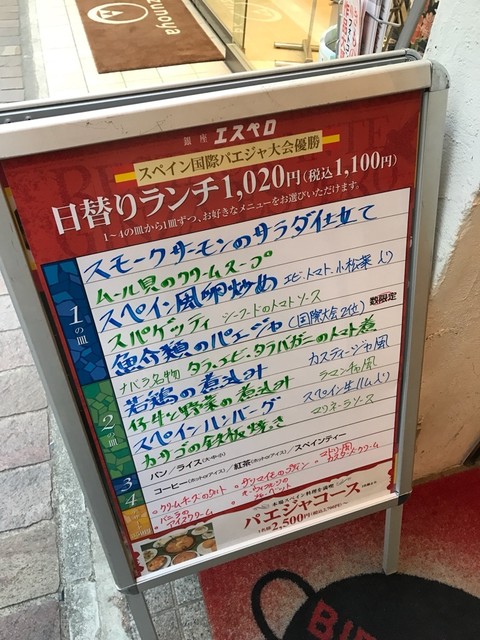 zunoya
銀座 エスペロ
スペイン国際パエジャ大会優勝
日替りランチ1,020円(税込1,100円)
1〜4の皿から1皿ずつ、お好きなメニューをお選びいただけます。
1の皿
スモークサーモンのサラダ仕立て
ムール貝のクリームスープ
スペイン風卵炒め エビ、トマト、小松菜入り
スパゲッティ シーフードのトマトソース
2の皿
魚介類のパエージャ(国際大会2位) 数限定
ナバラ名物 タラ、エビ、タラバガニのトマト煮
若鶏の煮込み カスティージャ風
仔牛と野菜の煮込み ラマンチャ風
スペインハンバーグ スペイン生ハム入り
カサゴの鉄板焼き マリネーラソース
3
パン/ライス(大・中・小)
4
コーヒー(ホットorアイス)/紅茶(ホットorアイス)/スペインティー
クリームチーズのタルト
サツマイモのプディン
マドリッド風カスタードクリーム
バニラのアイスクリーム
本場スペイン料理を満喫
パエジャコース
1名様2,500円